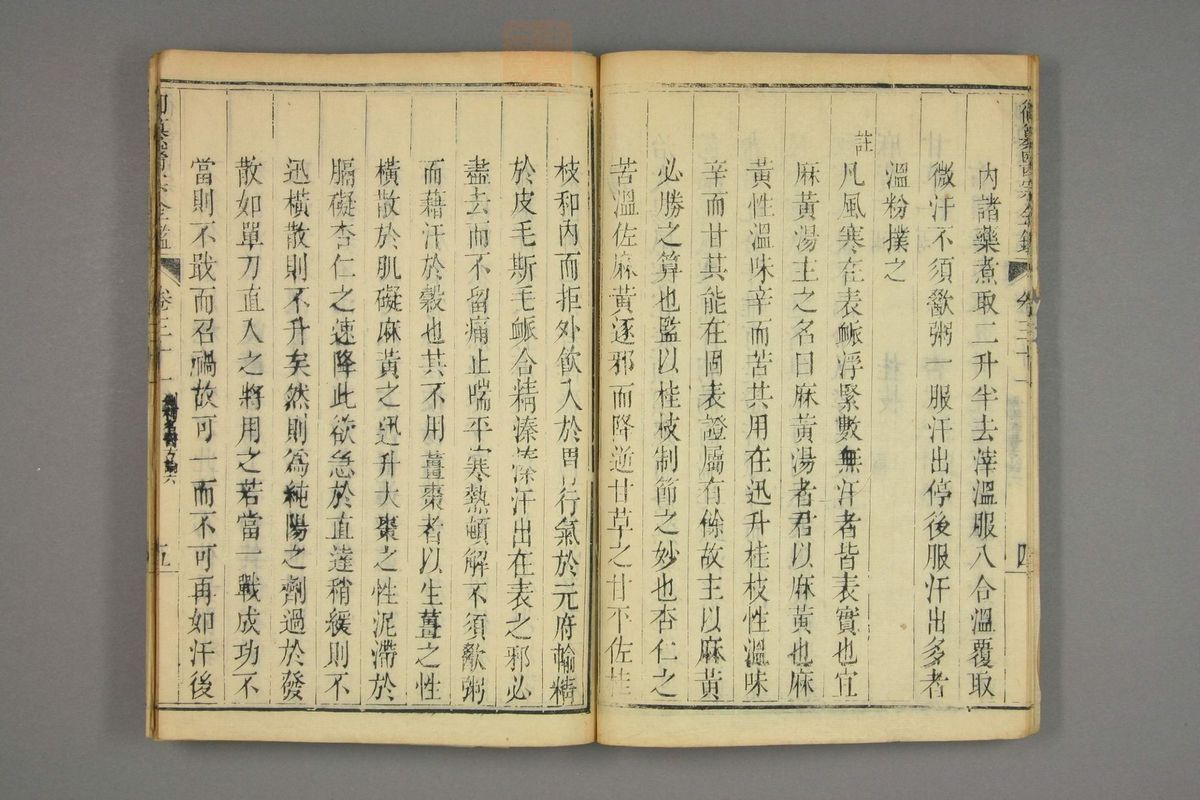 內諸藥煮取二升半去滓溫服八合溫覆取
微汗不須歠粥一服汗出停後服汗出多者
溫粉撲之
註
凡風寒在表脈浮緊數無汗者皆表實也宜
麻黃湯主之名曰麻黃湯者君以麻黃也麻
黃性溫味辛而苦其用在迅升桂枝性溫味
辛而甘其能在固表證屬有餘故主以麻黃
必勝之算也監以桂枝制節之妙也杏仁之
苦溫佐麻黃逐邪而降逆甘草之甘平佐桂
枝和內而拒外飲入於胃行氣於元府輸精
於皮毛斯毛脈合精溱溱汗出在表之邪必
盡去而不留痛止喘平寒熱頓解不須歠粥
而藉汗於穀也其不用薑棗者以生薑之性
橫散於肌礙麻黃之迅升大棗之性泥滯於
膈礙杏仁之速降此欲急於直達稍緩則不
迅橫散則不升矣然則為純陽之劑過於發
散如單刀直入之將用之若當一戰成功不
當則不戢而召禍故可一而不可再如汗後
卷三十一
五